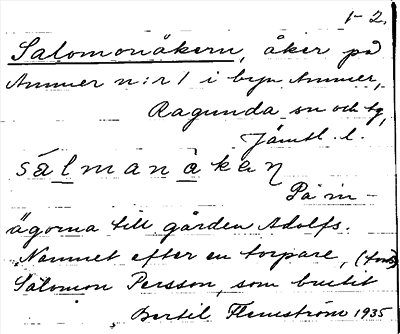 1-2.
Salomonåkern, åker på
Ammer n:r 1 i byn Ammer,
Ragunda sn och tg,
Jämtl. l.
sálmanákaɳ
På in-
ägorna till gården Adolfs.
Namnet efter en torpare,
Salomon Persson, som brutit
Bertil Flemström 1935